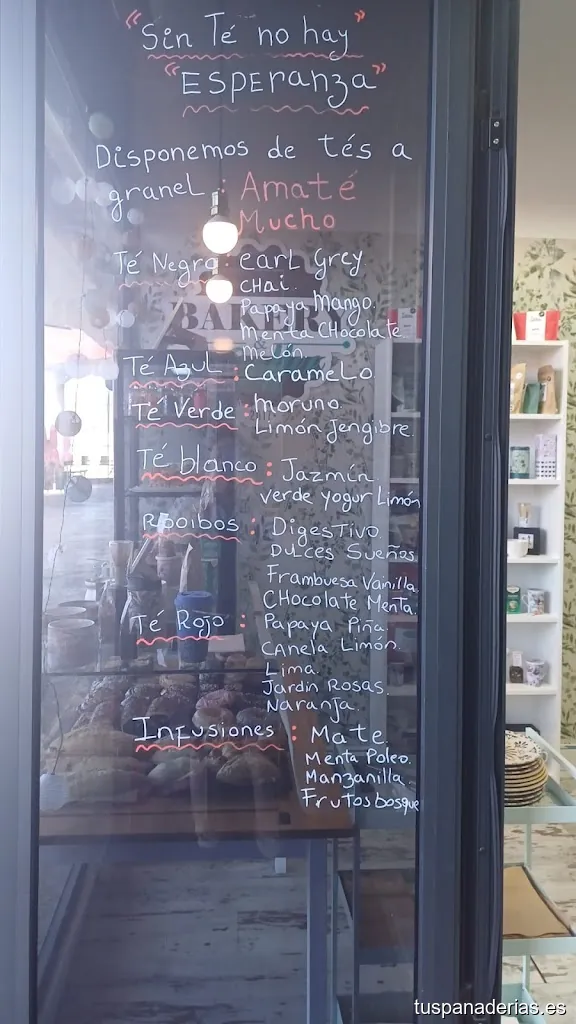 "Sin Té no hay"
"ESPERANZA"
Disponemos de tés a
graneL : Amaté
Mucho
Té Negro: earL Grey.
CHai.
Papaya Mango.
Menta CHocolate
Melón.
BAKERY
Té Azul : CarameLo
Té Verde : Moruno.
Limón Jengibre.
Té blanco : Jazmín
verde yogur Limón
Rooibos : Digestivo.
DuLces Sueños
Frambuesa Vanilla.
CHocolate Menta.
Té Rojo : Papaya Piña.
Canela Limón.
Lima.
Jardín Rosas.
Naranja.
Infusiones : Mate.
Menta Poleo.
Manzanilla.
Frutos bosque
tuspanaderias.es